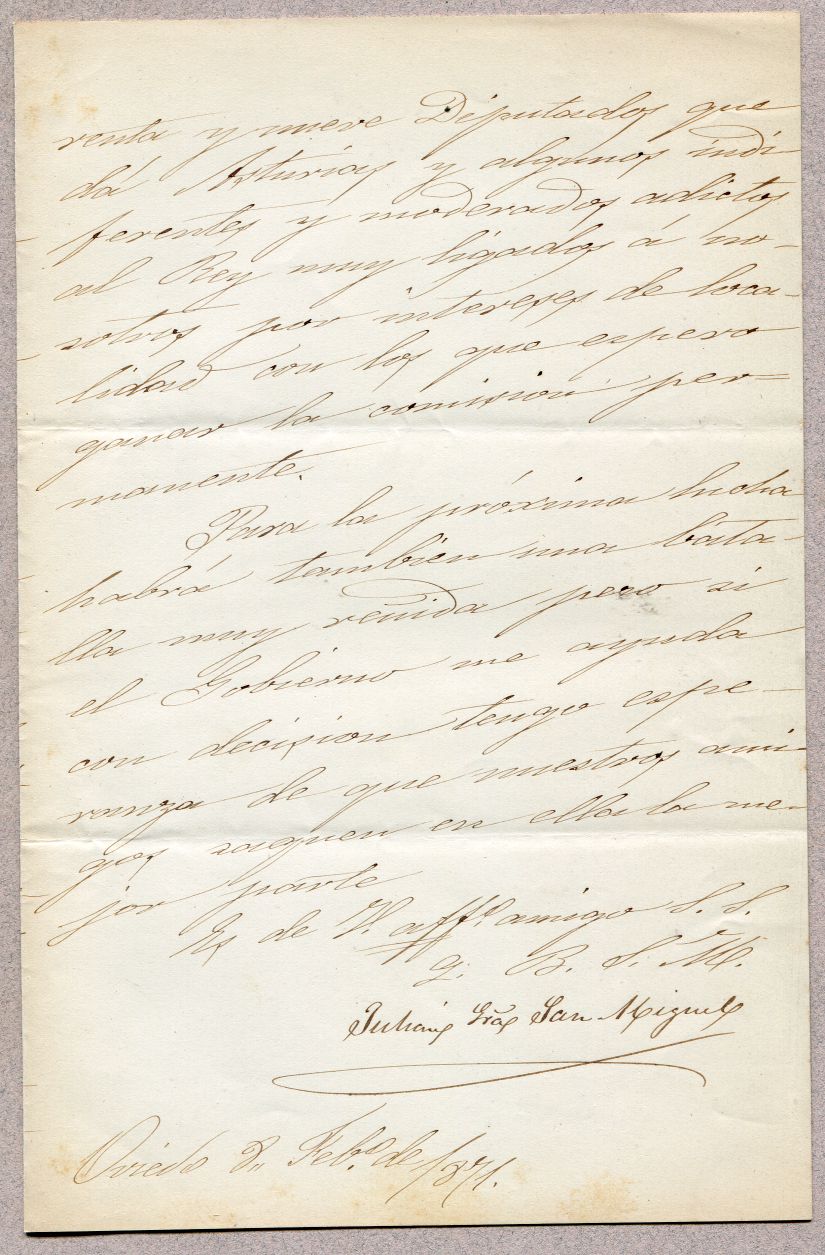 renta y nueve Diputados que
dá Asturias y algunos indi-
ferentes y moderados adictos
al Rey muy ligados á no-
sotros por intereses de loca-
lidad con los que espero
ganar la comision per=
manente.
Para la próxima lucha
habrá tambien una bata-
lla muy reñida pero si
el Gobierno me ayuda
con decision tengo espe-
ranza de que nuestros ami-
gos saquen en ella la me-
jor parte
Es de V. affº amigo S. S.
q. B. S. M.
Julián Gª San Miguel
Oviedo 2,, Febº de 1871.